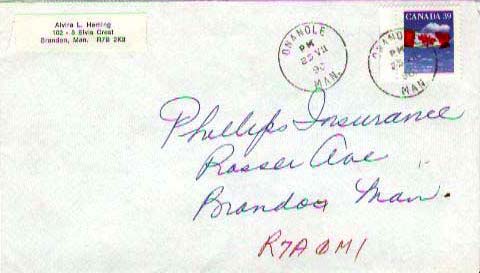 Alvira L. Heming
102 - 8 Elvis Crest
Brandon, Man. R7B 2K8
ONANOLE
PM
25 VII
90
MAN.
ONANOLE
PM
90
MAN.
CANADA 39
Phillips Insurance
Rosser Ave
Brandon Man.
R7A 0M1